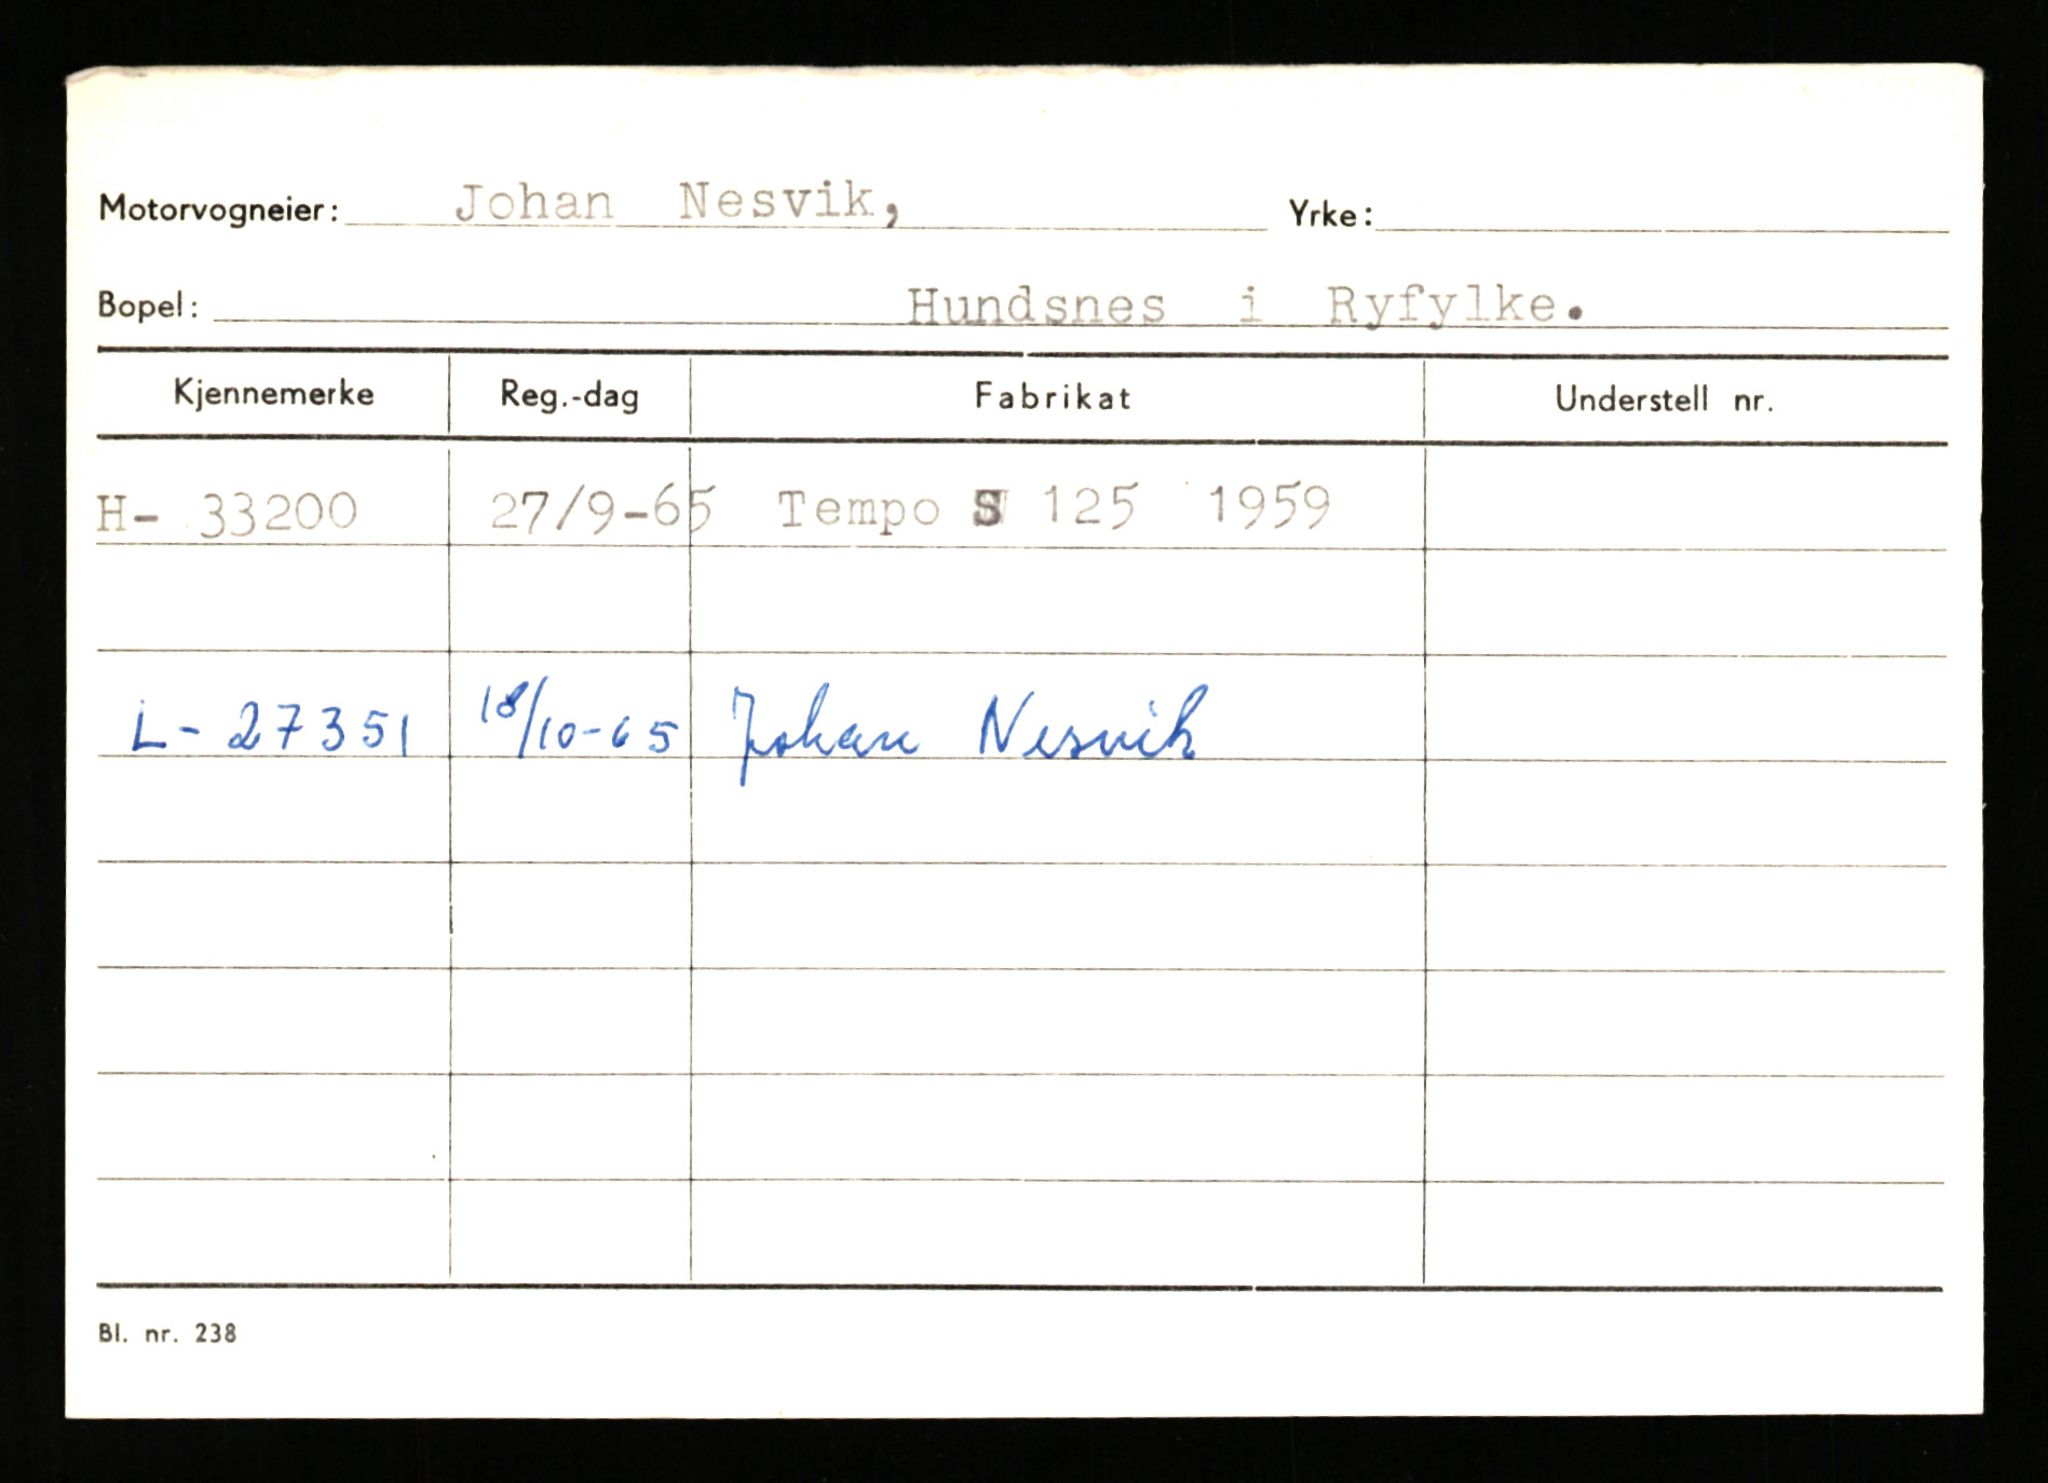 Motorvogneier: Johan Nesvik, Yrke:
Bopel: Hundsnes i Ryfylke.
Kjennemerke Reg.-dag Fabrikat Understell nr.
H- 33200 27/9-65 Tempo S 125 1959
L- 27351 18/10-65 Johan Nesvik
Bl. nr. 238